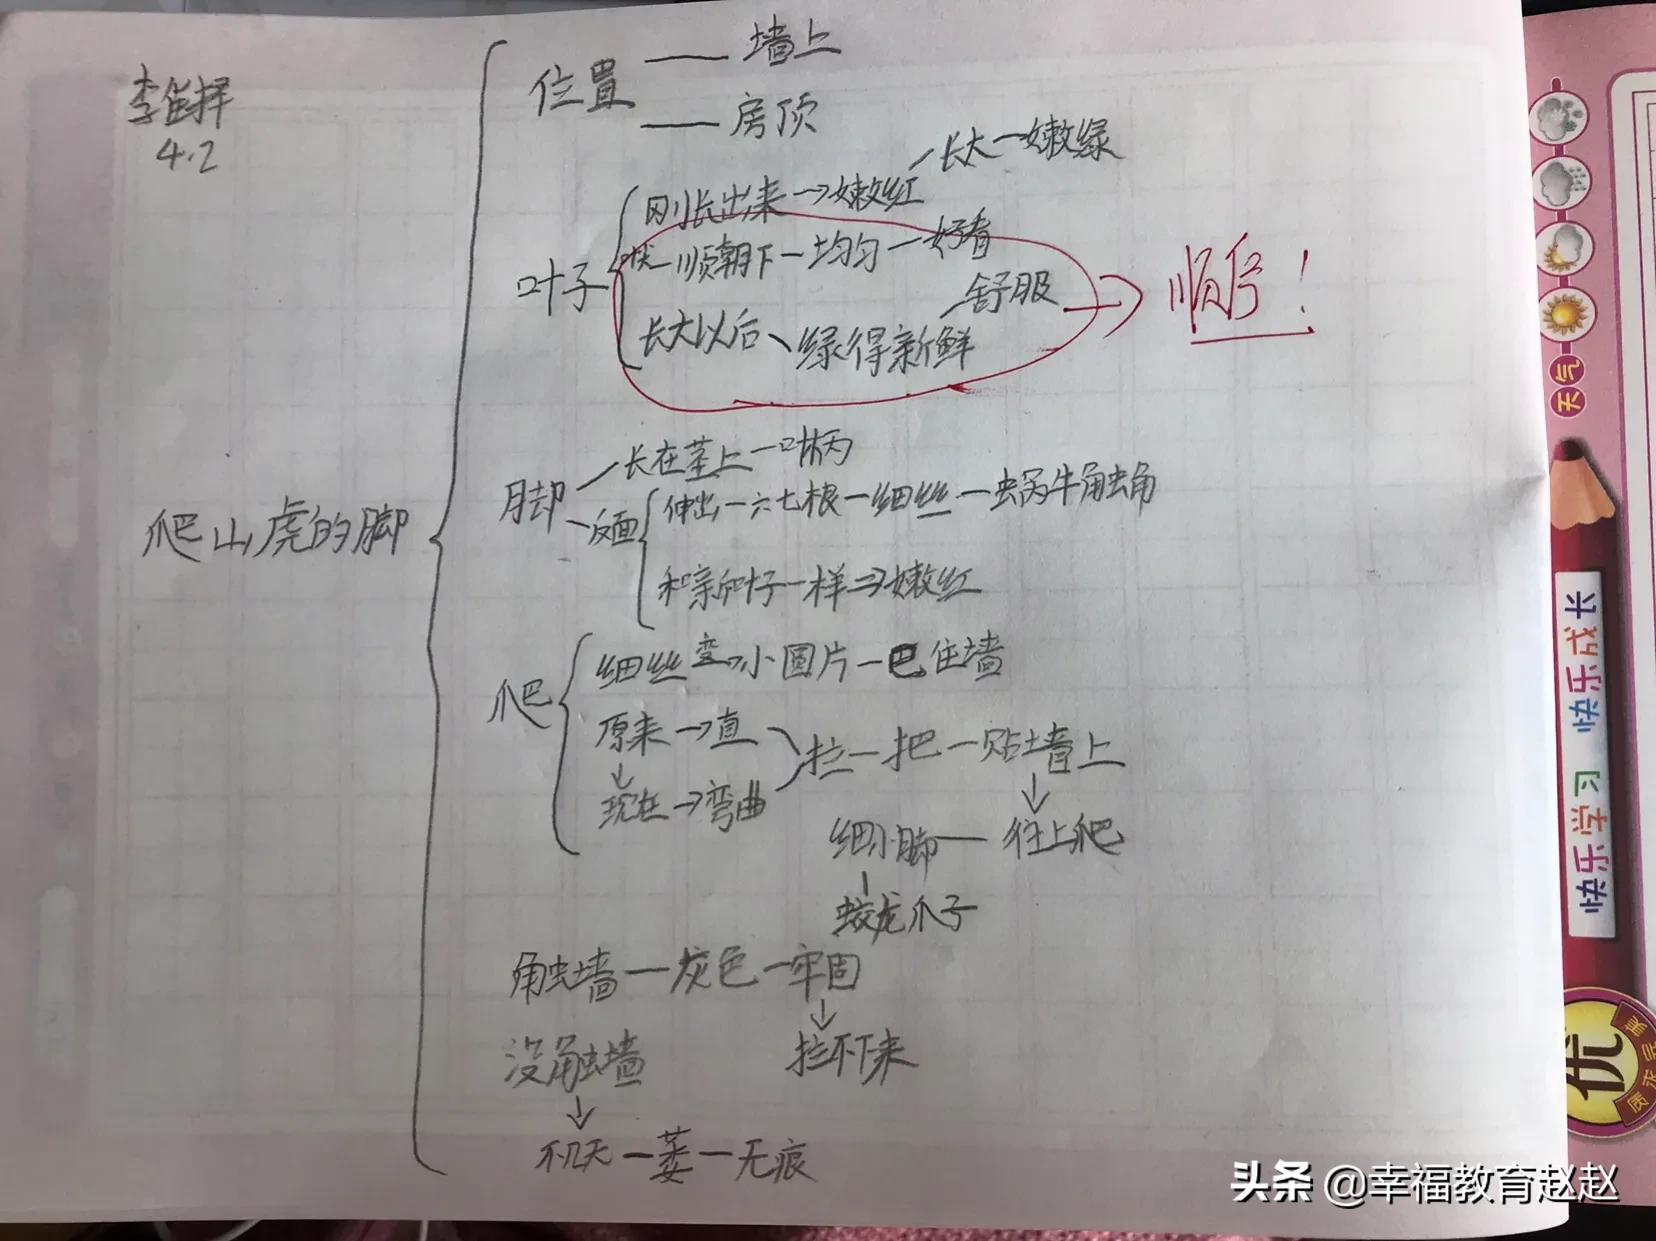 李佳择
4.2
位置
—— 墙上
—— 房顶
叶子
刚长出来→嫩红
长大—嫩绿
一顺朝下—均匀—好看
舒服
长大以后、绿得新鲜
顺序!
爬山虎的脚
脚
长在茎上—叶柄
反面
伸出—六七根—细丝—蜗牛角触角
和新叶子一样→嫩红
爬
细丝变→小圆片—巴住墙
原来→直
现在→弯曲
拉一把—贴墙上
细小脚—往上爬
蛟龙爪子
触墙—灰色—牢固
拉不下来
没触墙
不几天—萎—无痕
天气
快乐学习 快乐成长
优
头条 @幸福教育赵赵